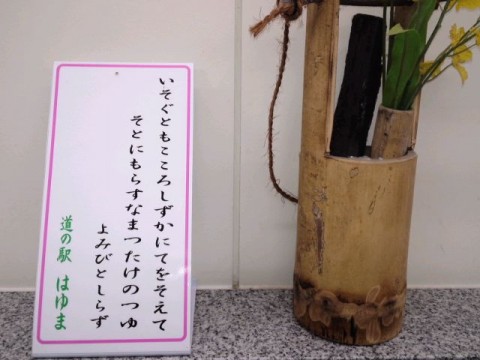 いそぐともこころしずかにてをそえて
そとにもらすなまつたけのつゆ
よみびとしらず
道の駅 はゆま